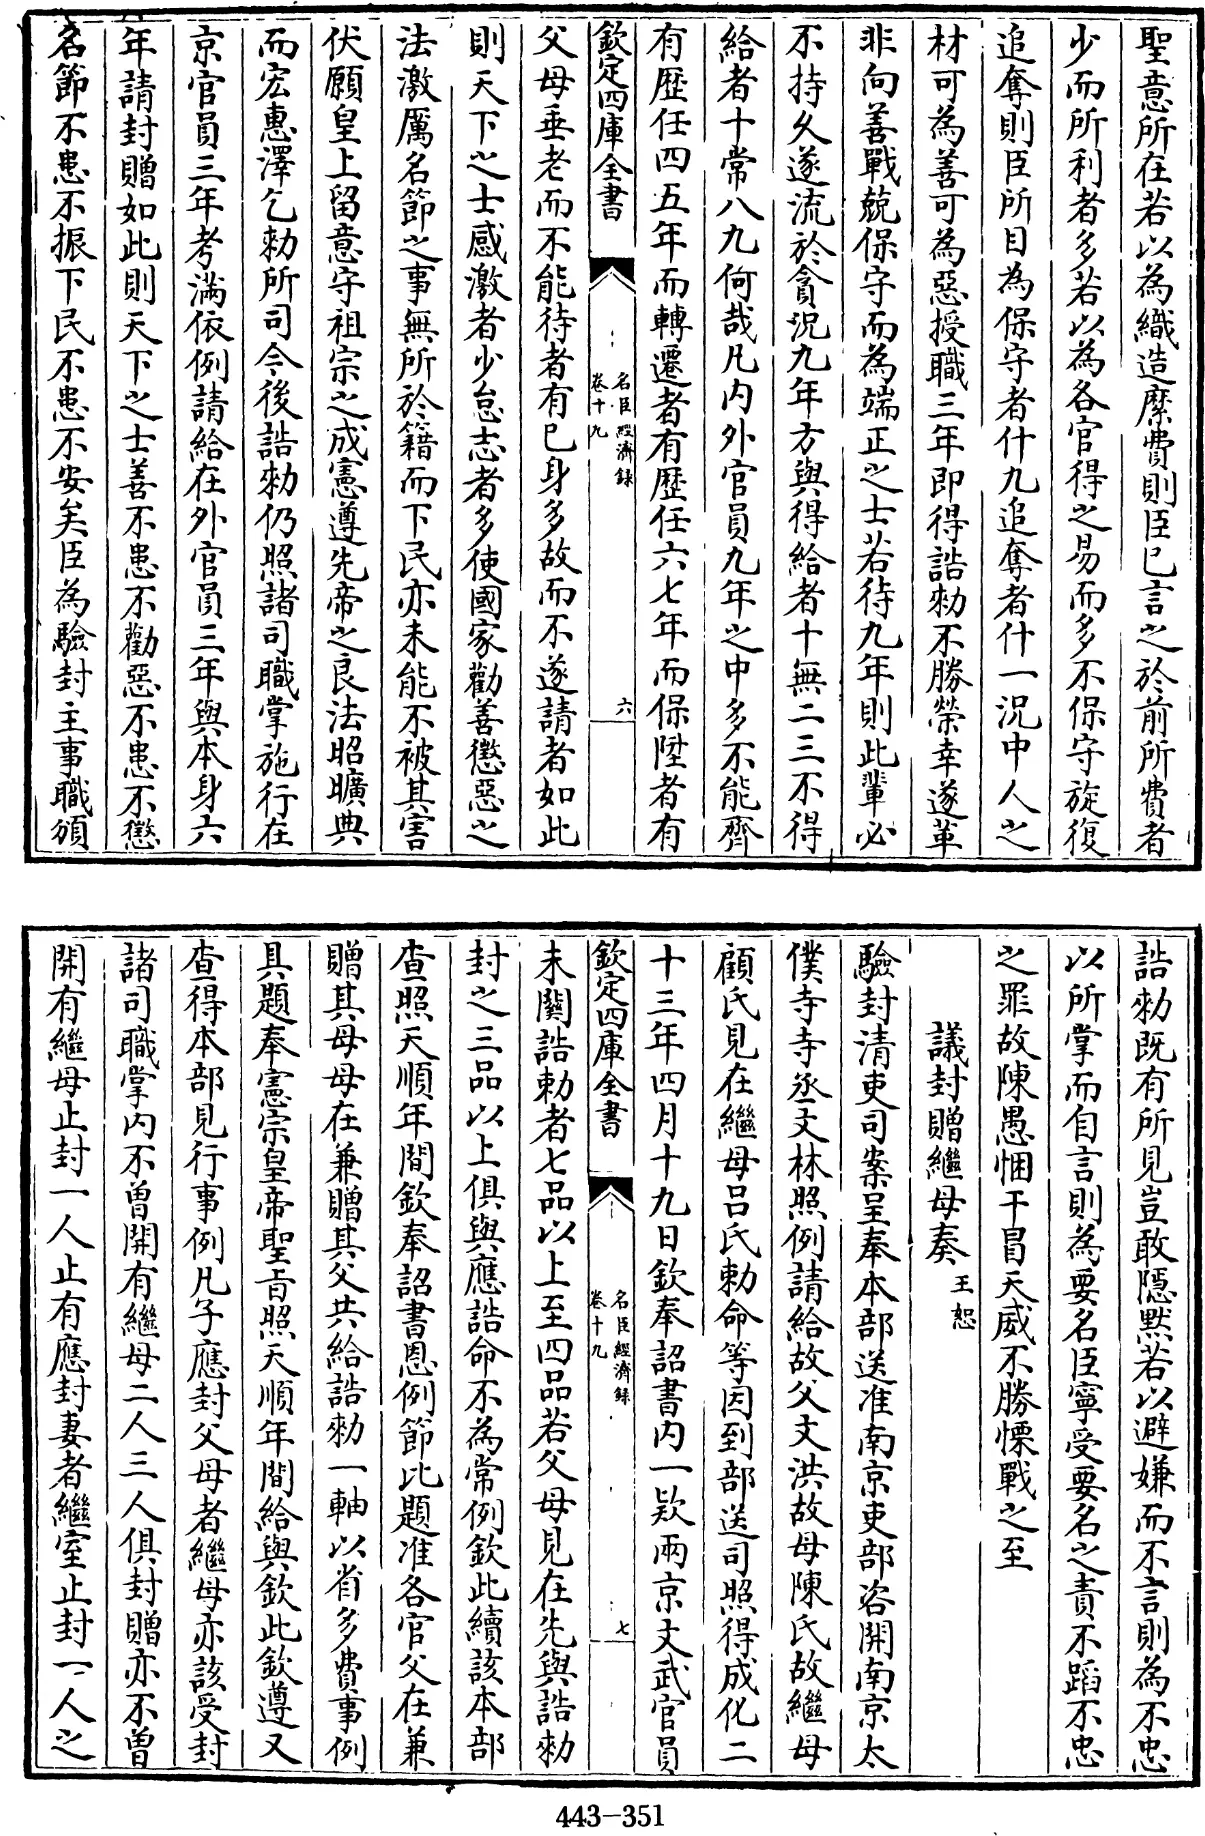 聖意所在若以為織造縻費則臣已言之於前所費者
少而所利者多若以為各官得之易而多不保守旋復
追奪則臣所目為保守者什九追奪者什一況中人之
材可為善可為惡授職三年即得誥勅不勝榮幸遂革
非向善戰兢保守而為端正之士若待九年則此輩必
不持久遂流於貪況九年方與得給者十無二三不得
給者十常八九何哉凡内外官員九年之中多不能齊
有歴任四五年而轉遷者有歴任六七年而保陞者有
欽定四庫全書
名臣經濟録
卷十九
六
父母垂老而不能待者有已身多故而不遂請者如此
則天下之士感激者少怠志者多使國家勸善懲惡之
法激厲名節之事無所於籍而下民亦未能不被其害
伏願皇上留意守祖宗之成憲遵先帝之良法昭曠典
而宏惠澤乞勅所司今後誥勅仍照諸司職掌施行在
京官員三年考滿依例請給在外官員三年與本身六
年請封贈如此則天下之士善不患不勸惡不患不懲
名節不患不振下民不患不安矣臣為驗封主事職頒
誥勅既有所見豈敢隱黙若以避嫌而不言則為不忠
以所掌而自言則為要名臣寧受要名之責不蹈不忠
之罪故陳愚悃干冒天威不勝慄戰之至
議封贈繼母奏 王恕
驗封清吏司案呈奉本部送准南京吏部咨開南京太
僕寺寺丞文林照例請給故父文洪故母陳氏故繼母
顧氏見在繼母吕氏勅命等因到部送司照得成化二
十三年四月十九日欽奉詔書内一欵兩京文武官員
欽定四庫全書
名臣經濟録
卷十九
七
未關誥勅者七品以上至四品若父母見在先與誥勅
封之三品以上俱與應誥命不為常例欽此續該本部
查照天順年間欽奉詔書恩例節比題准各官父在兼
贈其母母在兼贈其父共給誥勅一軸以省多費事例
具題奉憲宗皇帝聖旨照天順年間給與欽此欽遵又
查得本部見行事例凡子應封父母者繼母亦該受封
諸司職掌内不曽開有繼母二人三人俱封贈亦不曽
開有繼母止封一人止有應封妻者繼室止封一人之
443-351